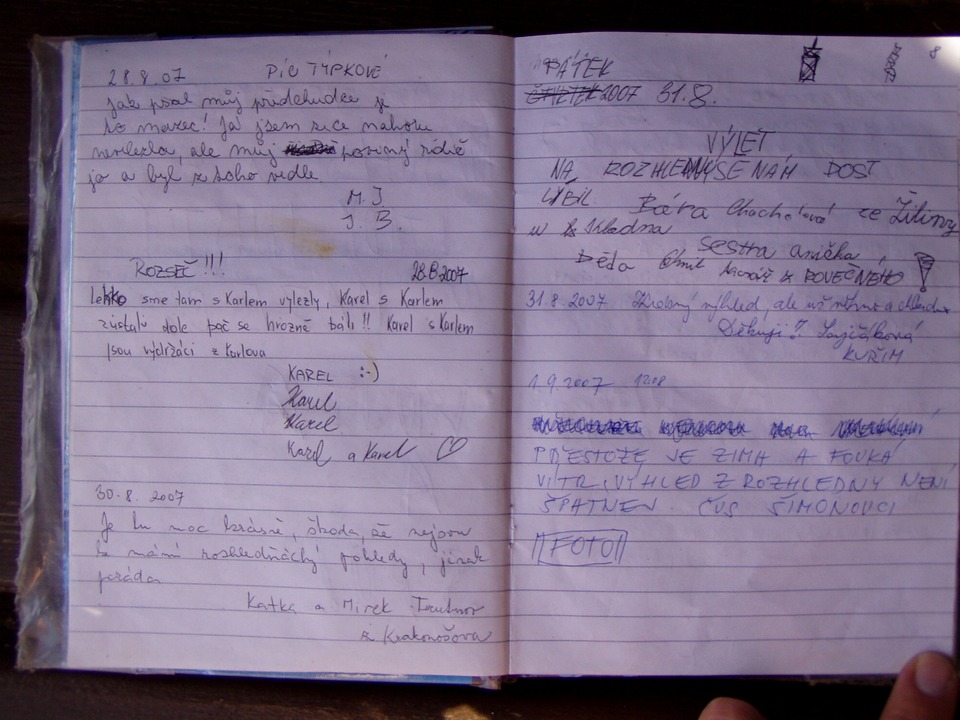 28.8.07 PÍČ TÝPKOVÉ
Jak psal můj předchůdce je
to mazec! Já jsem sice nahoru
nevylezla, ale můj posraný řidič
jo a byl z toho vedle
M. J.
J. B.
ROZSEČ!!! 28.8.2007
Lehko sme tam s Karlem vylezly, Karel s Karlem
zůstali dole pač se hrozně báli!! Karel s Karlem
jsou vydržáci z Karlova
KAREL :-)
Karel
Karel
Karel a Karel
30.8.2007
Je tu moc krásně, škoda, že nejsou
k mání rozhledňácký pohledy, jinak
paráda
Katka a Mirek Trutnov
z Krakonošova
8
PÁTEK
2007 31.8.
VÝLET
NA ROZHLEDNY SE NÁM DOST
LÍBIL Bára ze Žiliny
u Skladna
Sestra anička
Děda z POVEČNÉHO
31.8.2007 výhled, ale už
Děkuji
KUŘIM
1.9.2007 12:08
PŘESTOŽE JE ZIMA A FOUKÁ
VÍTR, VÝHLED Z ROZHLEDNY NENÍ
ŠPATNEJ. ČUS ŠIMONOVCI
FOTO